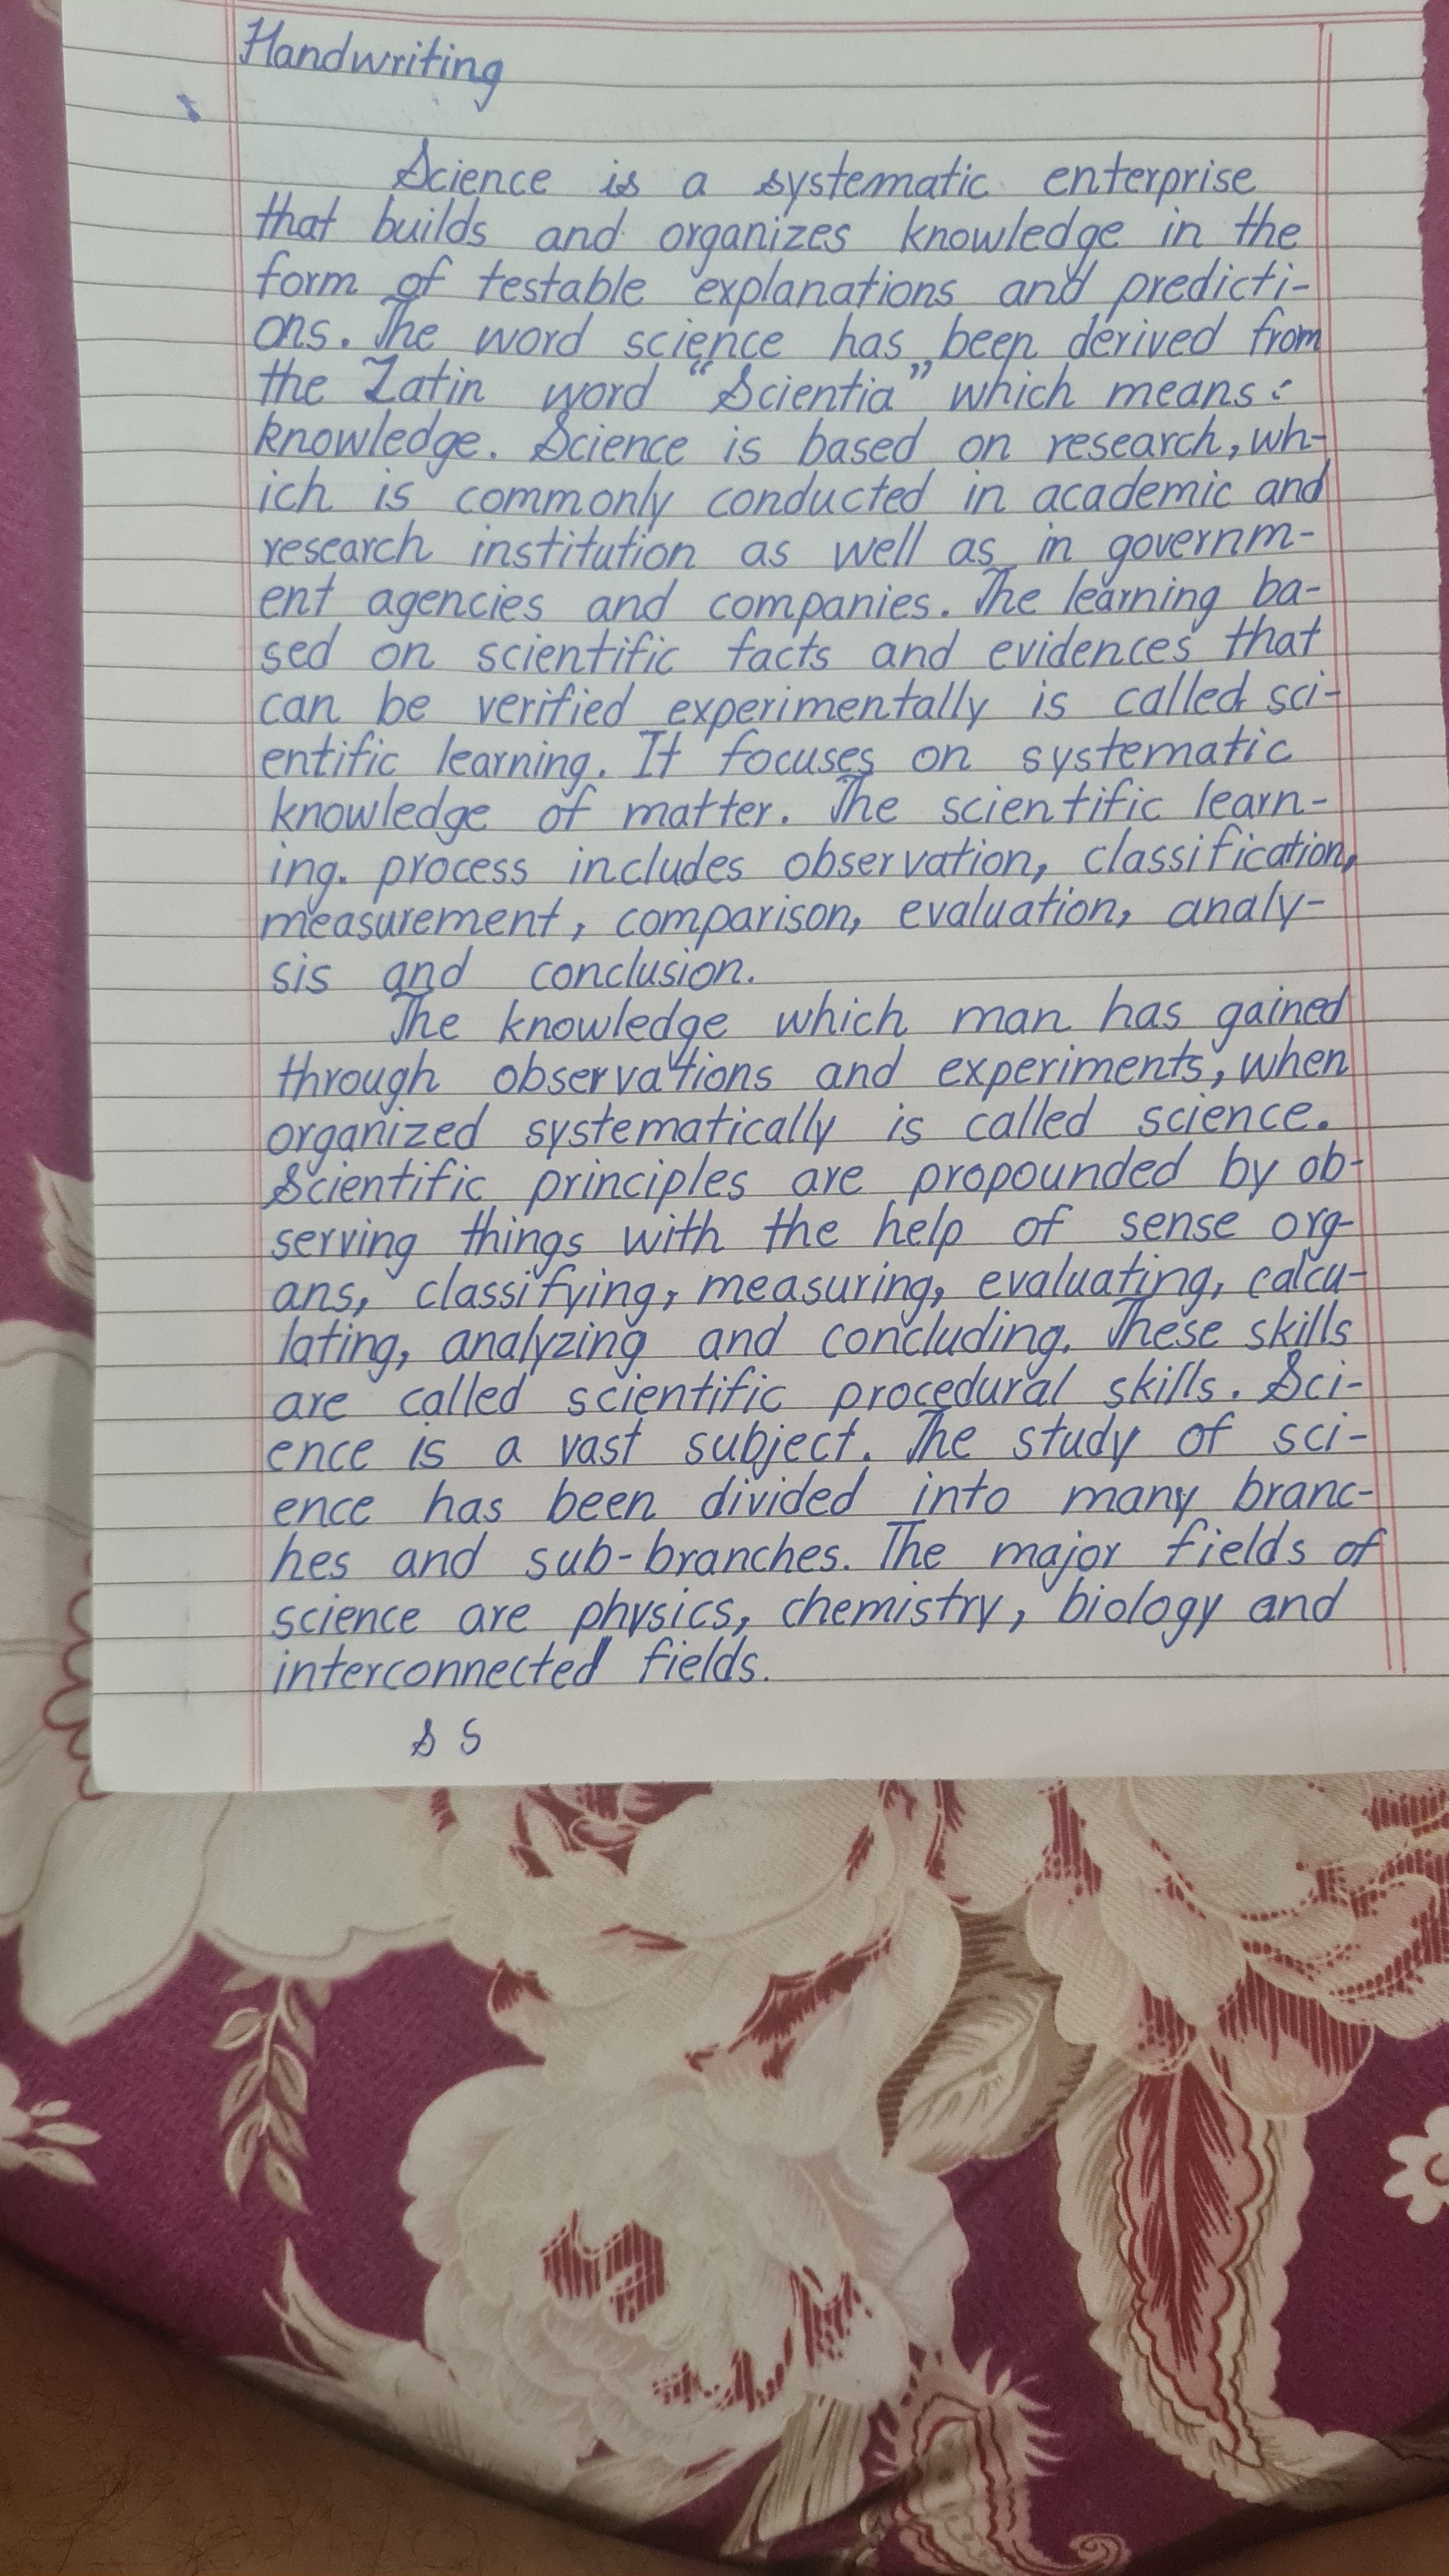 Handwriting
Science is a systematic enterprise
that builds and organizes knowledge in the
form of testable explanations and predicti-
ons. The word science has been derived from
the Latin word "Scientia" which means:
knowledge. Science is based on research, wh-
ich is commonly conducted in academic and
research institution as well as in governm-
ent agencies and companies. The learning ba-
sed on scientific facts and evidences that
can be verified experimentally is called sci-
entific learning. It focuses on systematic
knowledge of matter. The scientific learn-
ing. process includes observation, classification,
measurement, comparison, evaluation, analy-
sis and conclusion.
The knowledge which man has gained
through observations and experiments, when
organized systematically is called science.
Scientific principles are propounded by ob-
serving things with the help of sense org-
ans, classifying, measuring, evaluating, calcu-
lating, analyzing and concluding. These skills
are called scientific procedural skills. Sci-
ence is a vast subject. The study of sci-
ence has been divided into many branc-
hes and sub-branches. The major fields of
science are physics, chemistry, biology and
interconnected fields.
s s